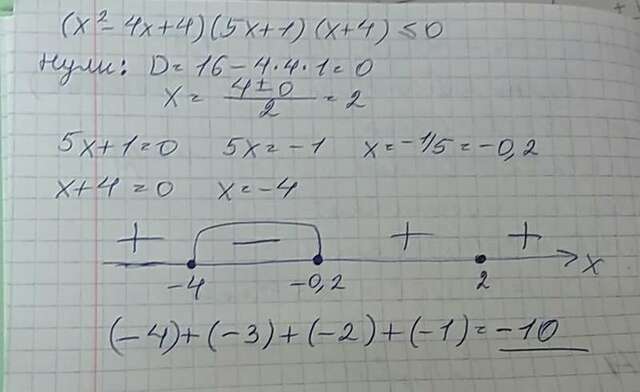 (x² - 4x + 4)(5x + 1)(x + 4) ≤ 0
Нули: D = 16 - 4·4·1 = 0
x = (4 ± 0)/2 = 2
5x + 1 = 0 5x = -1 x = -1/5 = -0,2
x + 4 = 0 x = -4
+ − + +
-4 -0,2 2 x
(-4) + (-3) + (-2) + (-1) = -10